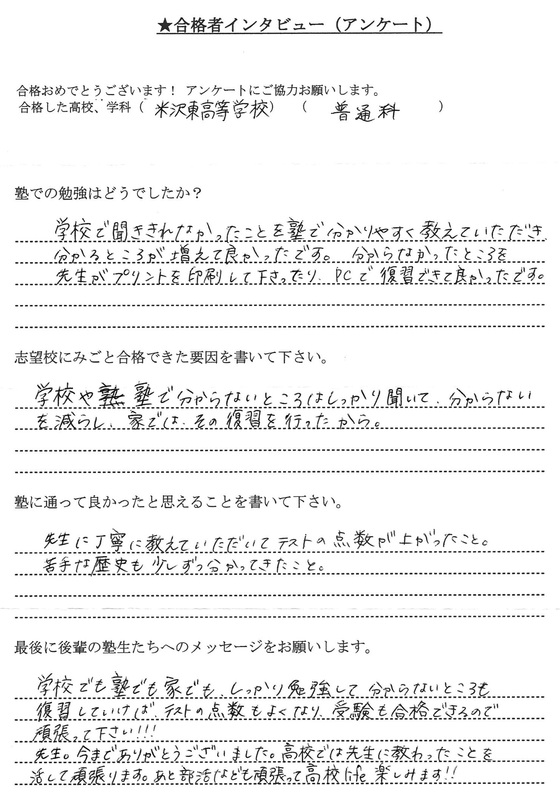 ★合格者インタビュー（アンケート）
合格おめでとうございます！ アンケートにご協力お願いします。
合格した高校、学科（ 米沢東高等学校） （ 普通科 ）
塾での勉強はどうでしたか？
学校で聞ききれなかったことを塾で分かりやすく教えていただき
分かるところが増えて良かったです。 分からなかったところを
先生がプリントを印刷して下さったり、PCで復習できて良かったです。
志望校にみごと合格できた要因を書いて下さい。
学校や塾で分からないところはしっかり聞いて、分からない
を減らし、家では、その復習を行ったから。
塾に通って良かったと思えることを書いて下さい。
先生に丁寧に教えていただいてテストの点数が上がったこと。
苦手な歴史も少しずつ分かってきたこと。
最後に後輩の塾生たちへのメッセージをお願いします。
学校でも塾でも家でも、しっかり勉強して分からないところも
復習していけば、テストの点数もよくなり、受験も合格できるので
頑張って下さい!!!
先生。今までありがとうございました。高校では先生に教わったことを
活して頑張ります。あと部活なども頑張って高校life楽しみます!!